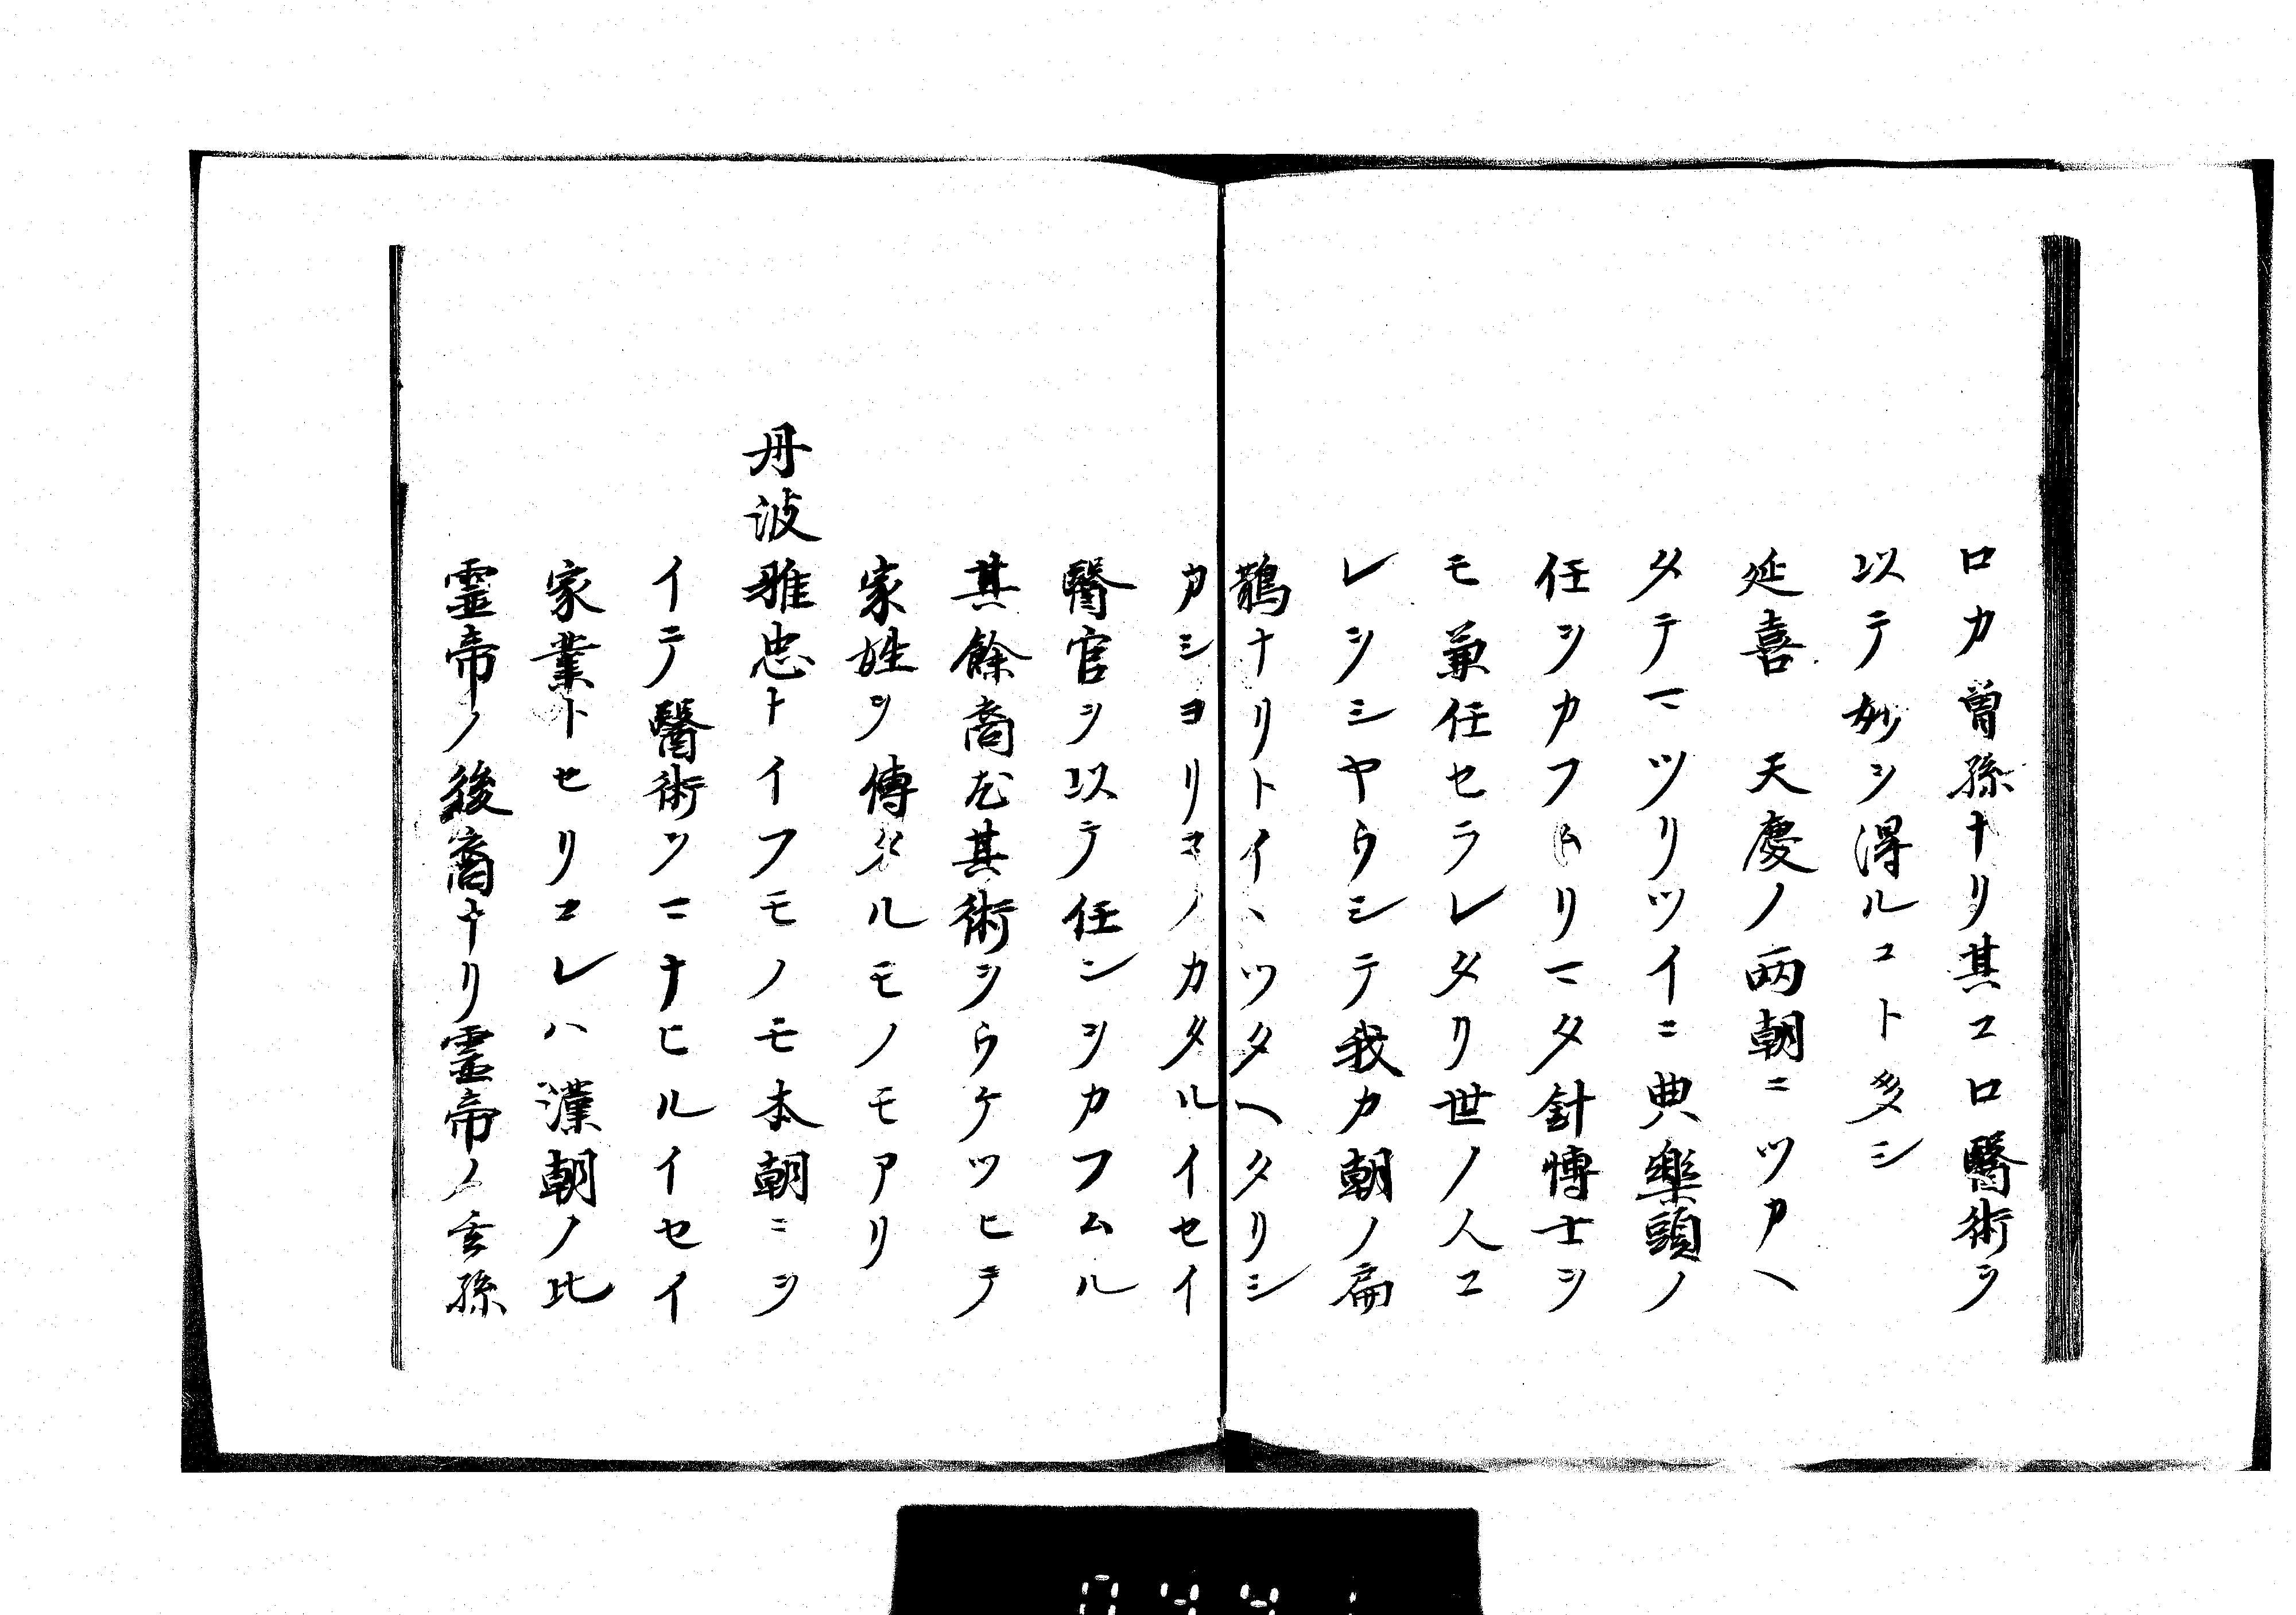 ロカ曽孫ナリ其コロ醫術ヲ
以テ妙ヲ得ルコト多シ
延喜　天慶ノ兩朝ニツカヘ
タテマツリツイニ典藥頭ノ
任ヲカフムリマタ針博士ヲ
モ兼任セラレタリ世ノ人コ
レヲシヤウシテ我カ朝ノ扁
鵲ナリトイヽツタヘタリシ
カシヨリコノカタルイセイ
醫官ヲ以テ任シヲカフムル
其餘裔尤其術ヲウケツヒテ
家姓ヲ傳タルモノモアリ
丹波雅忠トイフモノモ本朝ニヲ
イテ醫術ヲマナヒルイセイ
家業トセリコレハ漢朝ノ比
霊帝ノ後裔ナリ霊帝ノ玄孫